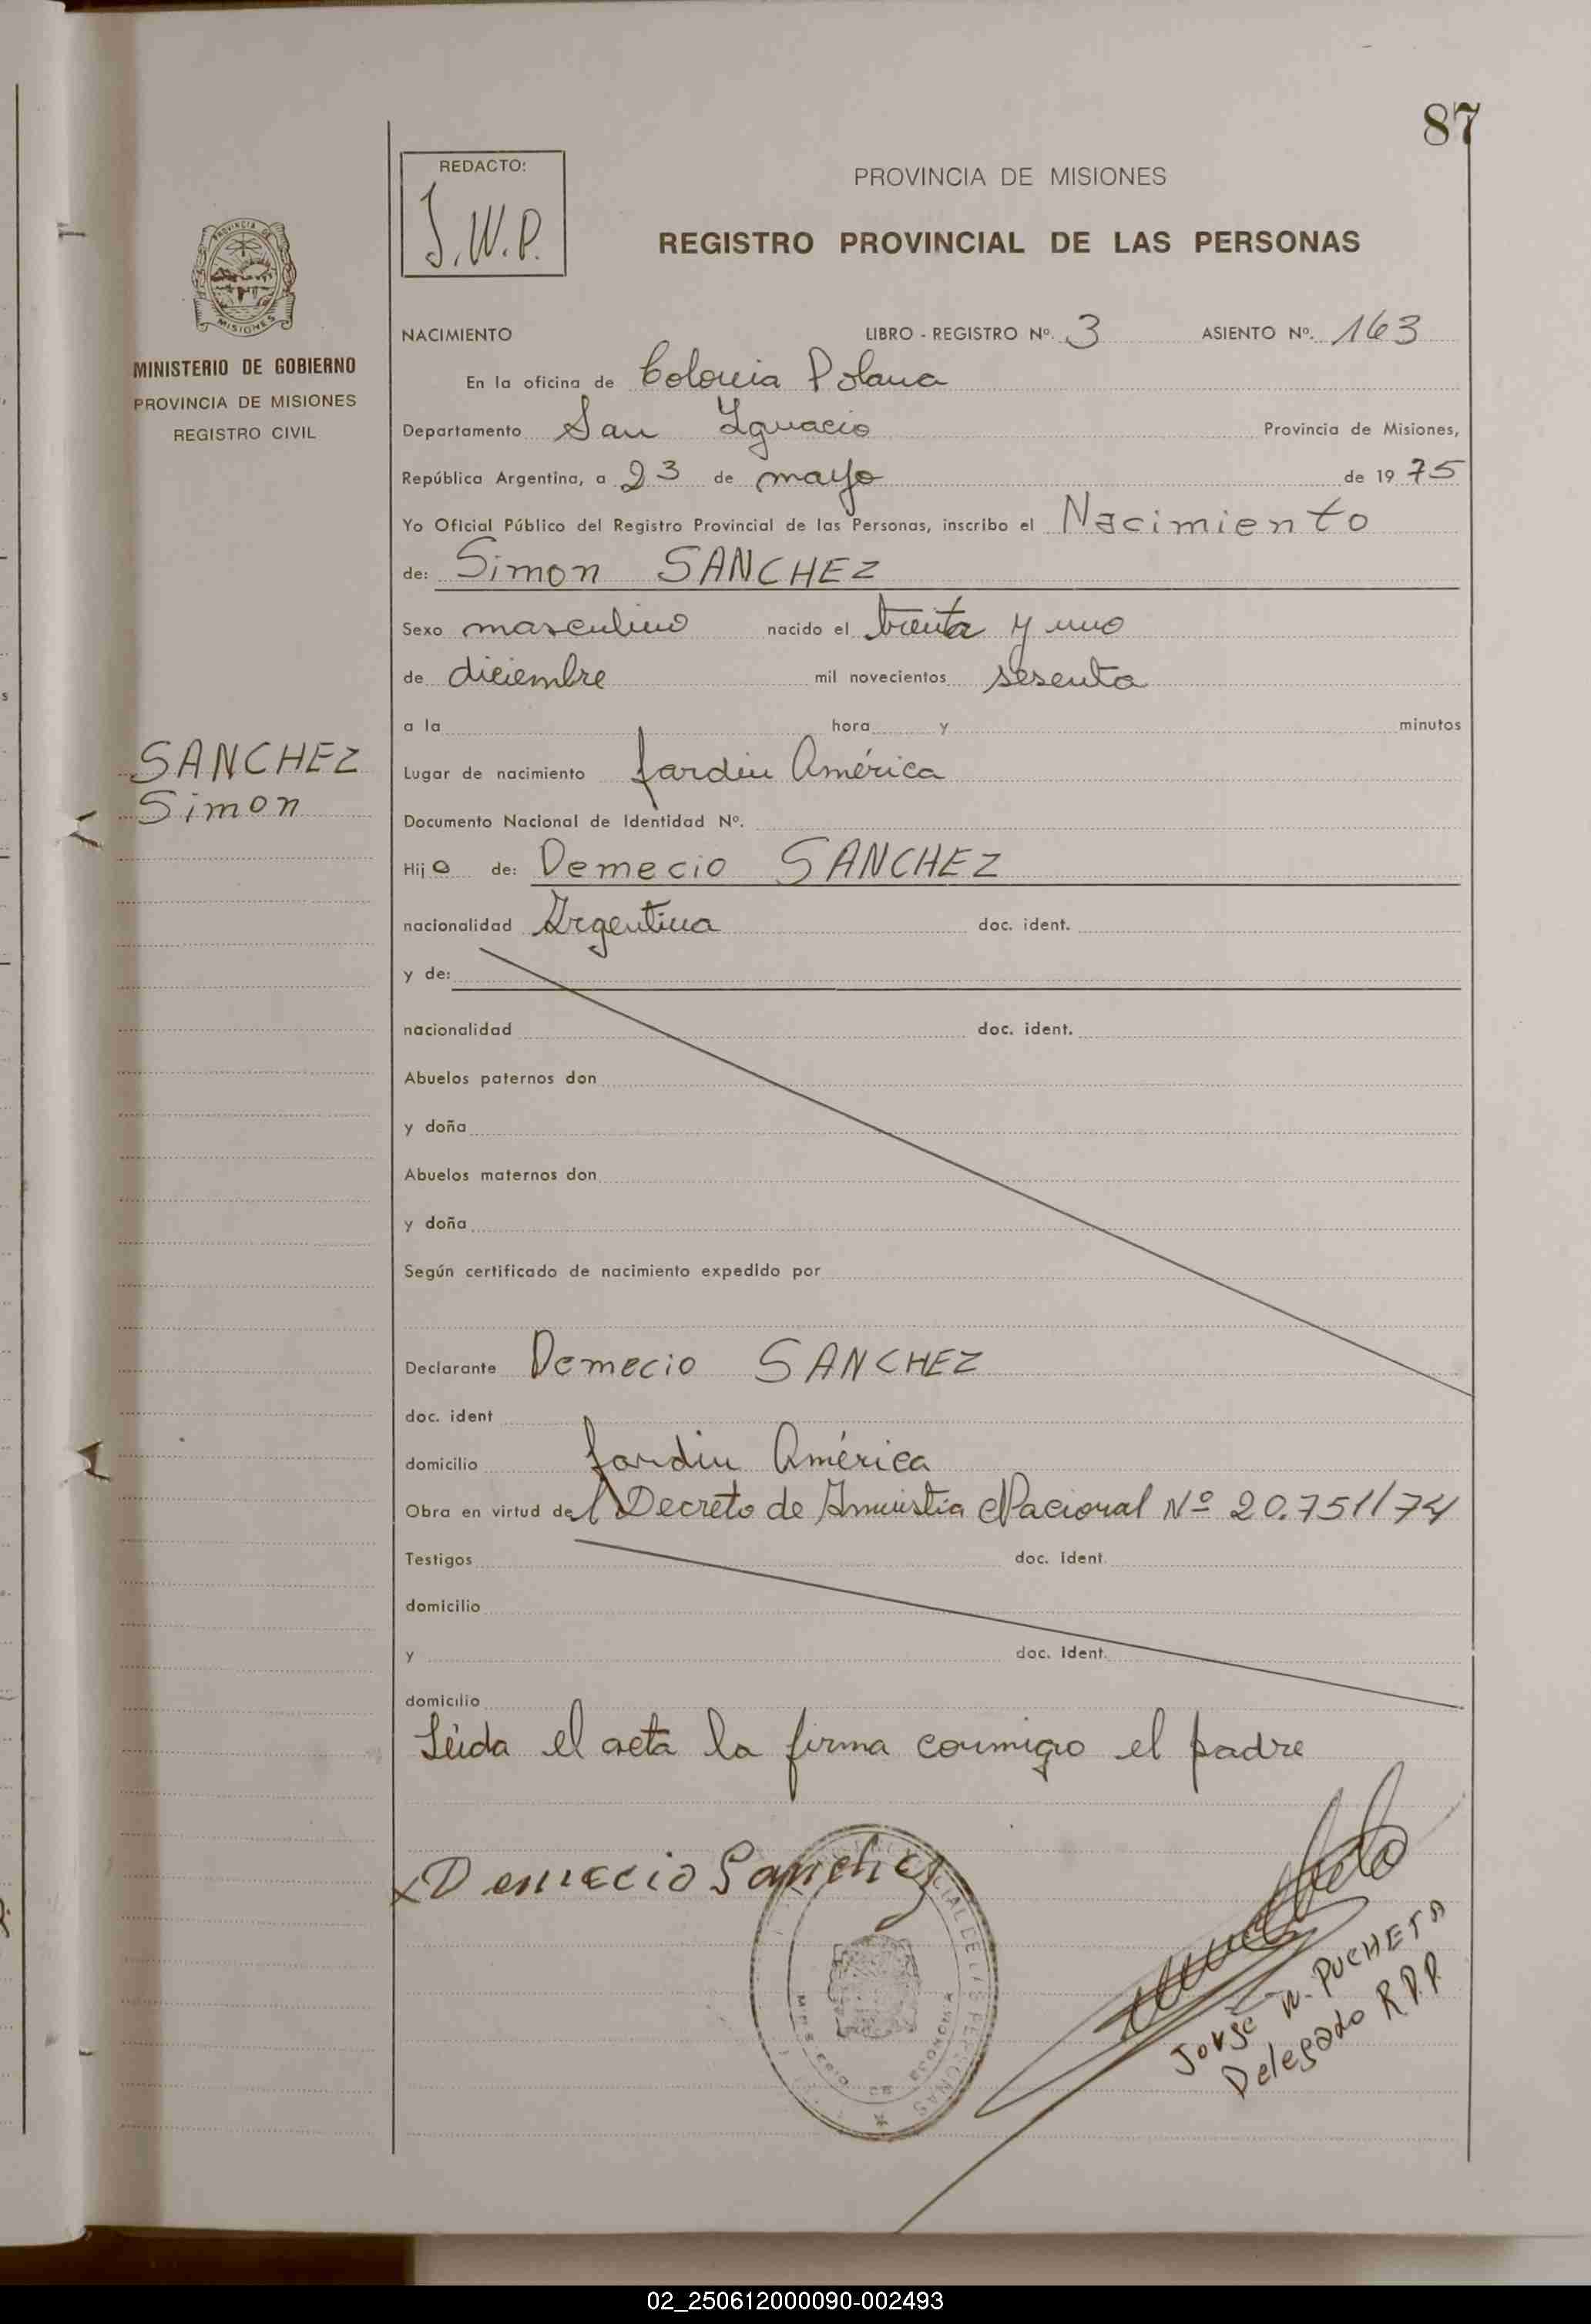 87
REDACTO:
J.W.P.
PROVINCIA DE MISIONES
REGISTRO PROVINCIAL DE LAS PERSONAS
MISIONES
MINISTERIO DE GOBIERNO
PROVINCIA DE MISIONES
REGISTRO CIVIL
NACIMIENTO LIBRO - REGISTRO Nº. 3 ASIENTO Nº. 163
En la oficina de Colonia Polana
Departamento San Ygnacio Provincia de Misiones,
República Argentina, a 23 de mayo de 1975
Yo Oficial Público del Registro Provincial de las Personas, inscribo el Nacimiento
de: Simon SANCHEZ
Sexo masculino nacido el treinta y uno
de diciembre mil novecientos sesenta
a la hora y minutos
SANCHEZ
Simon
Lugar de nacimiento Jardin América
Documento Nacional de Identidad Nº.
Hijo de: Demecio SANCHEZ
nacionalidad Argentina doc. ident.
y de:
nacionalidad doc. ident.
Abuelos paternos don
y doña
Abuelos maternos don
y doña
Según certificado de nacimiento expedido por
Declarante Demecio SANCHEZ
doc. ident
domicilio Jardin América
Obra en virtud del Decreto de Amnistia Nacional Nº 20.751/74
Testigos doc. ident.
domicilio
y doc. ident.
domicilio
Leida el acta la firma conmigo el padre
x Demecio Sanchez
JORGE W. PUCHETA
Delegado R.P.P.
02_250612000090-002493